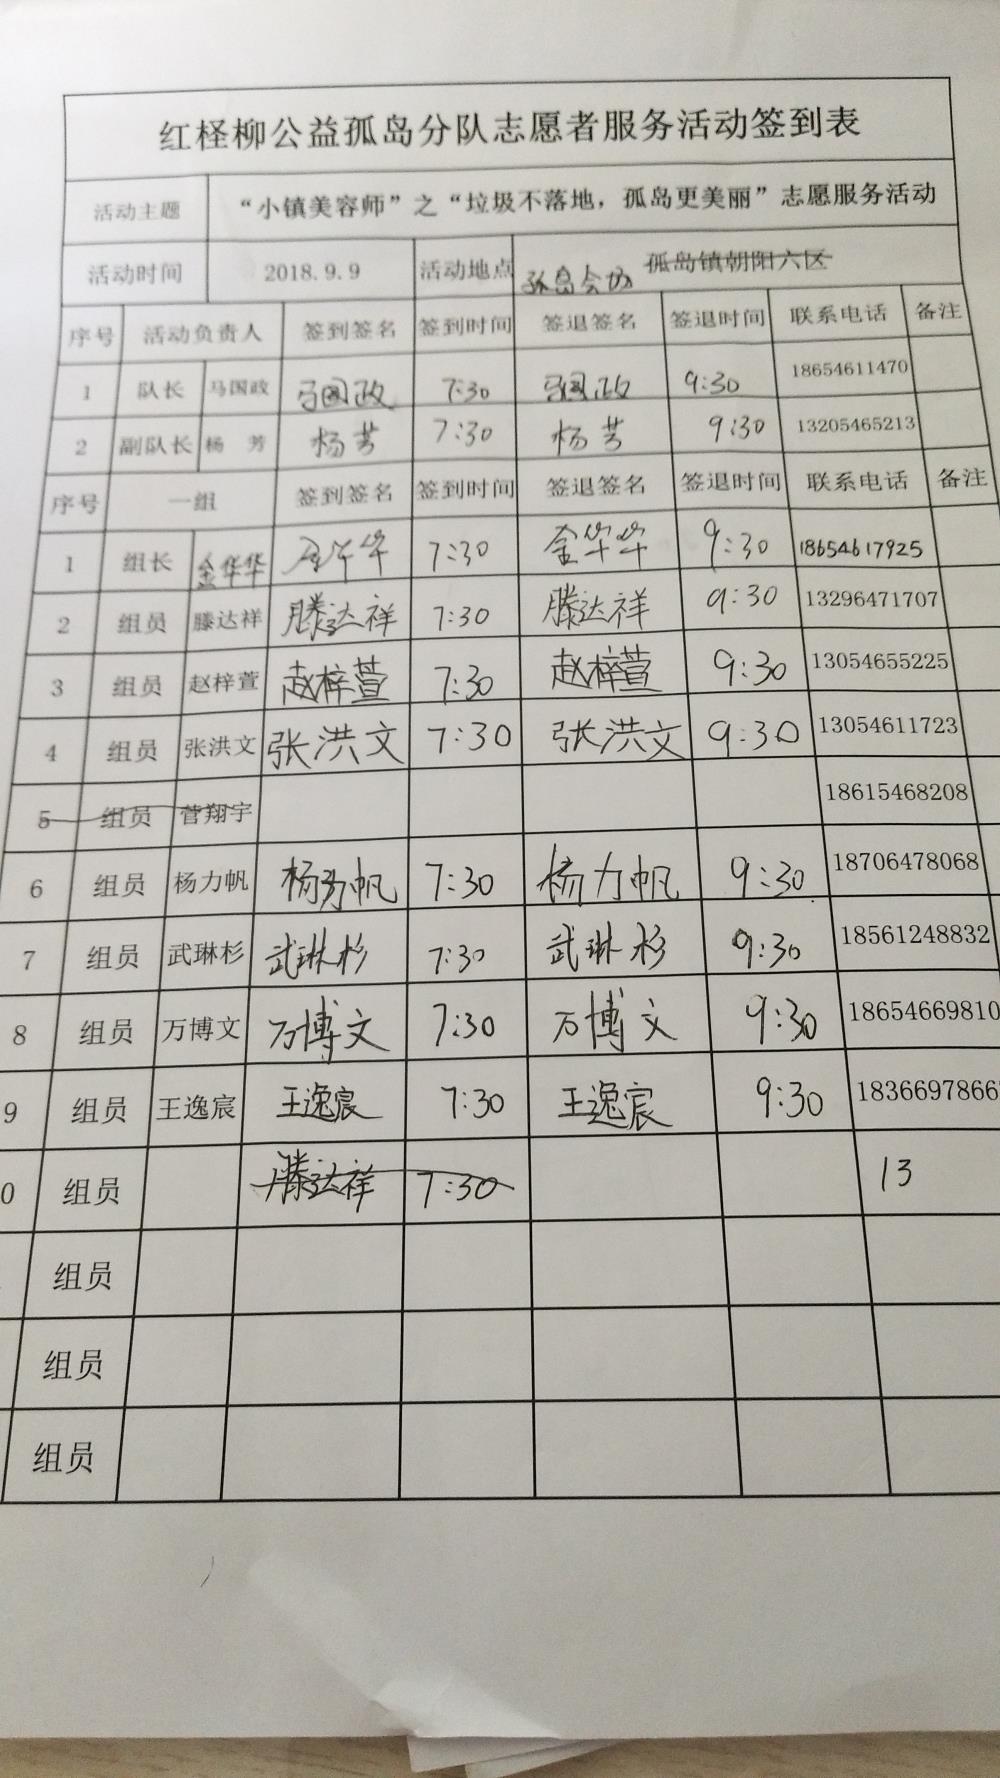 红柽柳公益孤岛分队志愿者服务活动签到表
活动主题 “小镇美容师”之“垃圾不落地，孤岛更美丽”志愿服务活动
活动时间 2018.9.9 活动地点 孤岛会场 孤岛镇朝阳六区
序号 活动负责人 签到签名 签到时间 签退签名 签退时间 联系电话 备注
1 队长 马国政 马国政 7:30 马国政 9:30 18654611470
2 副队长 杨 芳 杨芳 7:30 杨芳 9:30 13205465213
序号 一组 签到签名 签到时间 签退签名 签退时间 联系电话 备注
1 组长 金华华 金华华 7:30 金华华 9:30 18654617925
2 组员 滕达祥 滕达祥 7:30 滕达祥 9:30 13296471707
3 组员 赵梓萱 赵梓萱 7:30 赵梓萱 9:30 13054655225
4 组员 张洪文 张洪文 7:30 张洪文 9:30 13054611723
5 组员 菅翔宇 18615468208
6 组员 杨力帆 杨力帆 7:30 杨力帆 9:30 18706478068
7 组员 武琳杉 武琳杉 7:30 武琳杉 9:30 18561248832
8 组员 万博文 万博文 7:30 万博文 9:30 18654669810
9 组员 王逸宸 王逸宸 7:30 王逸宸 9:30 1836697866
0 组员 滕达祥 7:30 13
组员
组员
组员